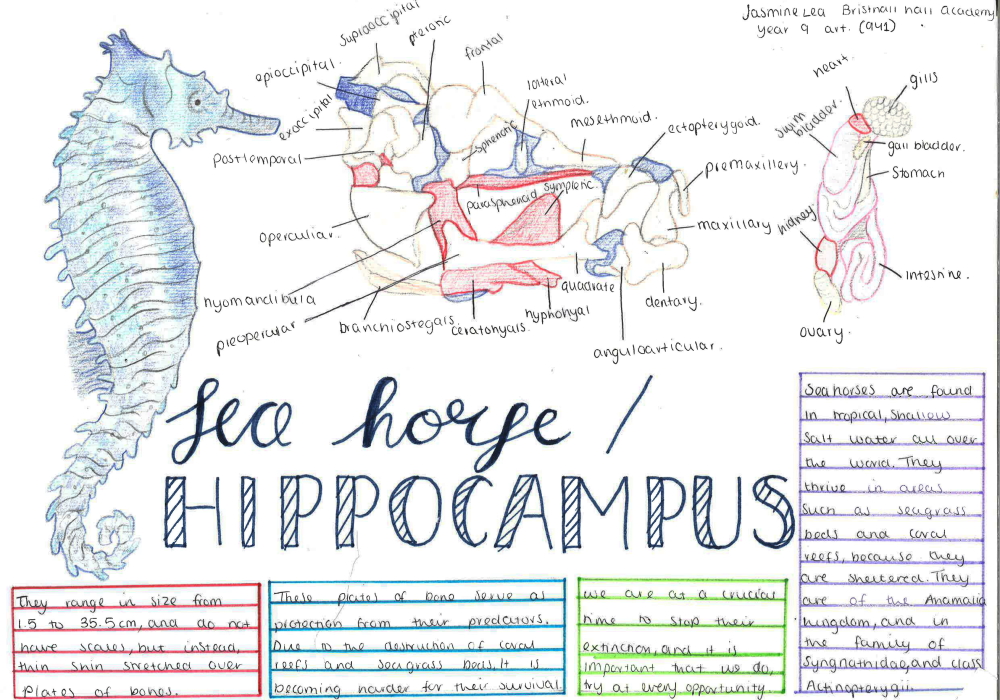 Jasmine Lea Bristnall hall Academy
year 9 art. (9y1)
supraoccipital
pterotic
frontal
epioccipital.
lateral
ethmoid.
mesethmoid.
exoccipital
sphenotic
ectopterygoid.
posttemporal
premaxillery.
parasphenoid
symplectic.
operculiar.
maxillary
hyomandibula
preopercular
branchiostegals.
ceratohyals.
hyphohyal
quadrate
dentary.
anguloarticular.
heart.
gills
swim
bladder.
gall bladder.
Stomach
kidney
intestine.
ovary.
Sea horse /
HIPPOCAMPUS
They range in size from
1.5 to 35.5cm, and do not
have scales, but instead,
thin skin stretched over
plates of bones.
These plates of bone serve as
protection from their predators.
Due to the destruction of coral
reefs and seagrass beds, It is
becoming harder for their survival.
we are at a crucial
time to stop their
extinction, and it is
important that we do,
try at every opportunity.
Seahorses are found
in tropical, shallow
salt water all over
the world. They
thrive in areas
Such as seagrass
beds and coral
reefs, because they
are sheltered. They
are of the Anamalia
kungdom, and in
the family of
Syngnathidae, and class
Actinopterygii.